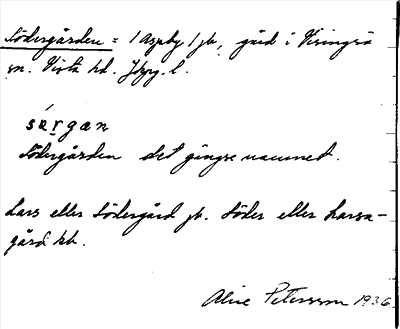 Södergården = 1 Aspby 1 jb, gård i Visingsö
sn. Vista hd. Jkpg. l.
sǿrgan
Södergården det gängse namnet.
Lars eller Södergård jb. Söder eller Larsa-
gård kb.
Aline Petersson 1936